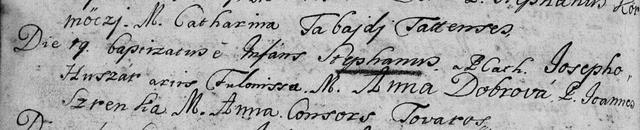 möczj. M. Catharina Tabajdj Tattenses.
Die 19. baptizatus e Infans Stephanus. a P. Cath. Josepho
Huszár artis Fulonissa. M. Anna Dobrová P. Joannes
Szrenka M. Anna Consors Tovaros.